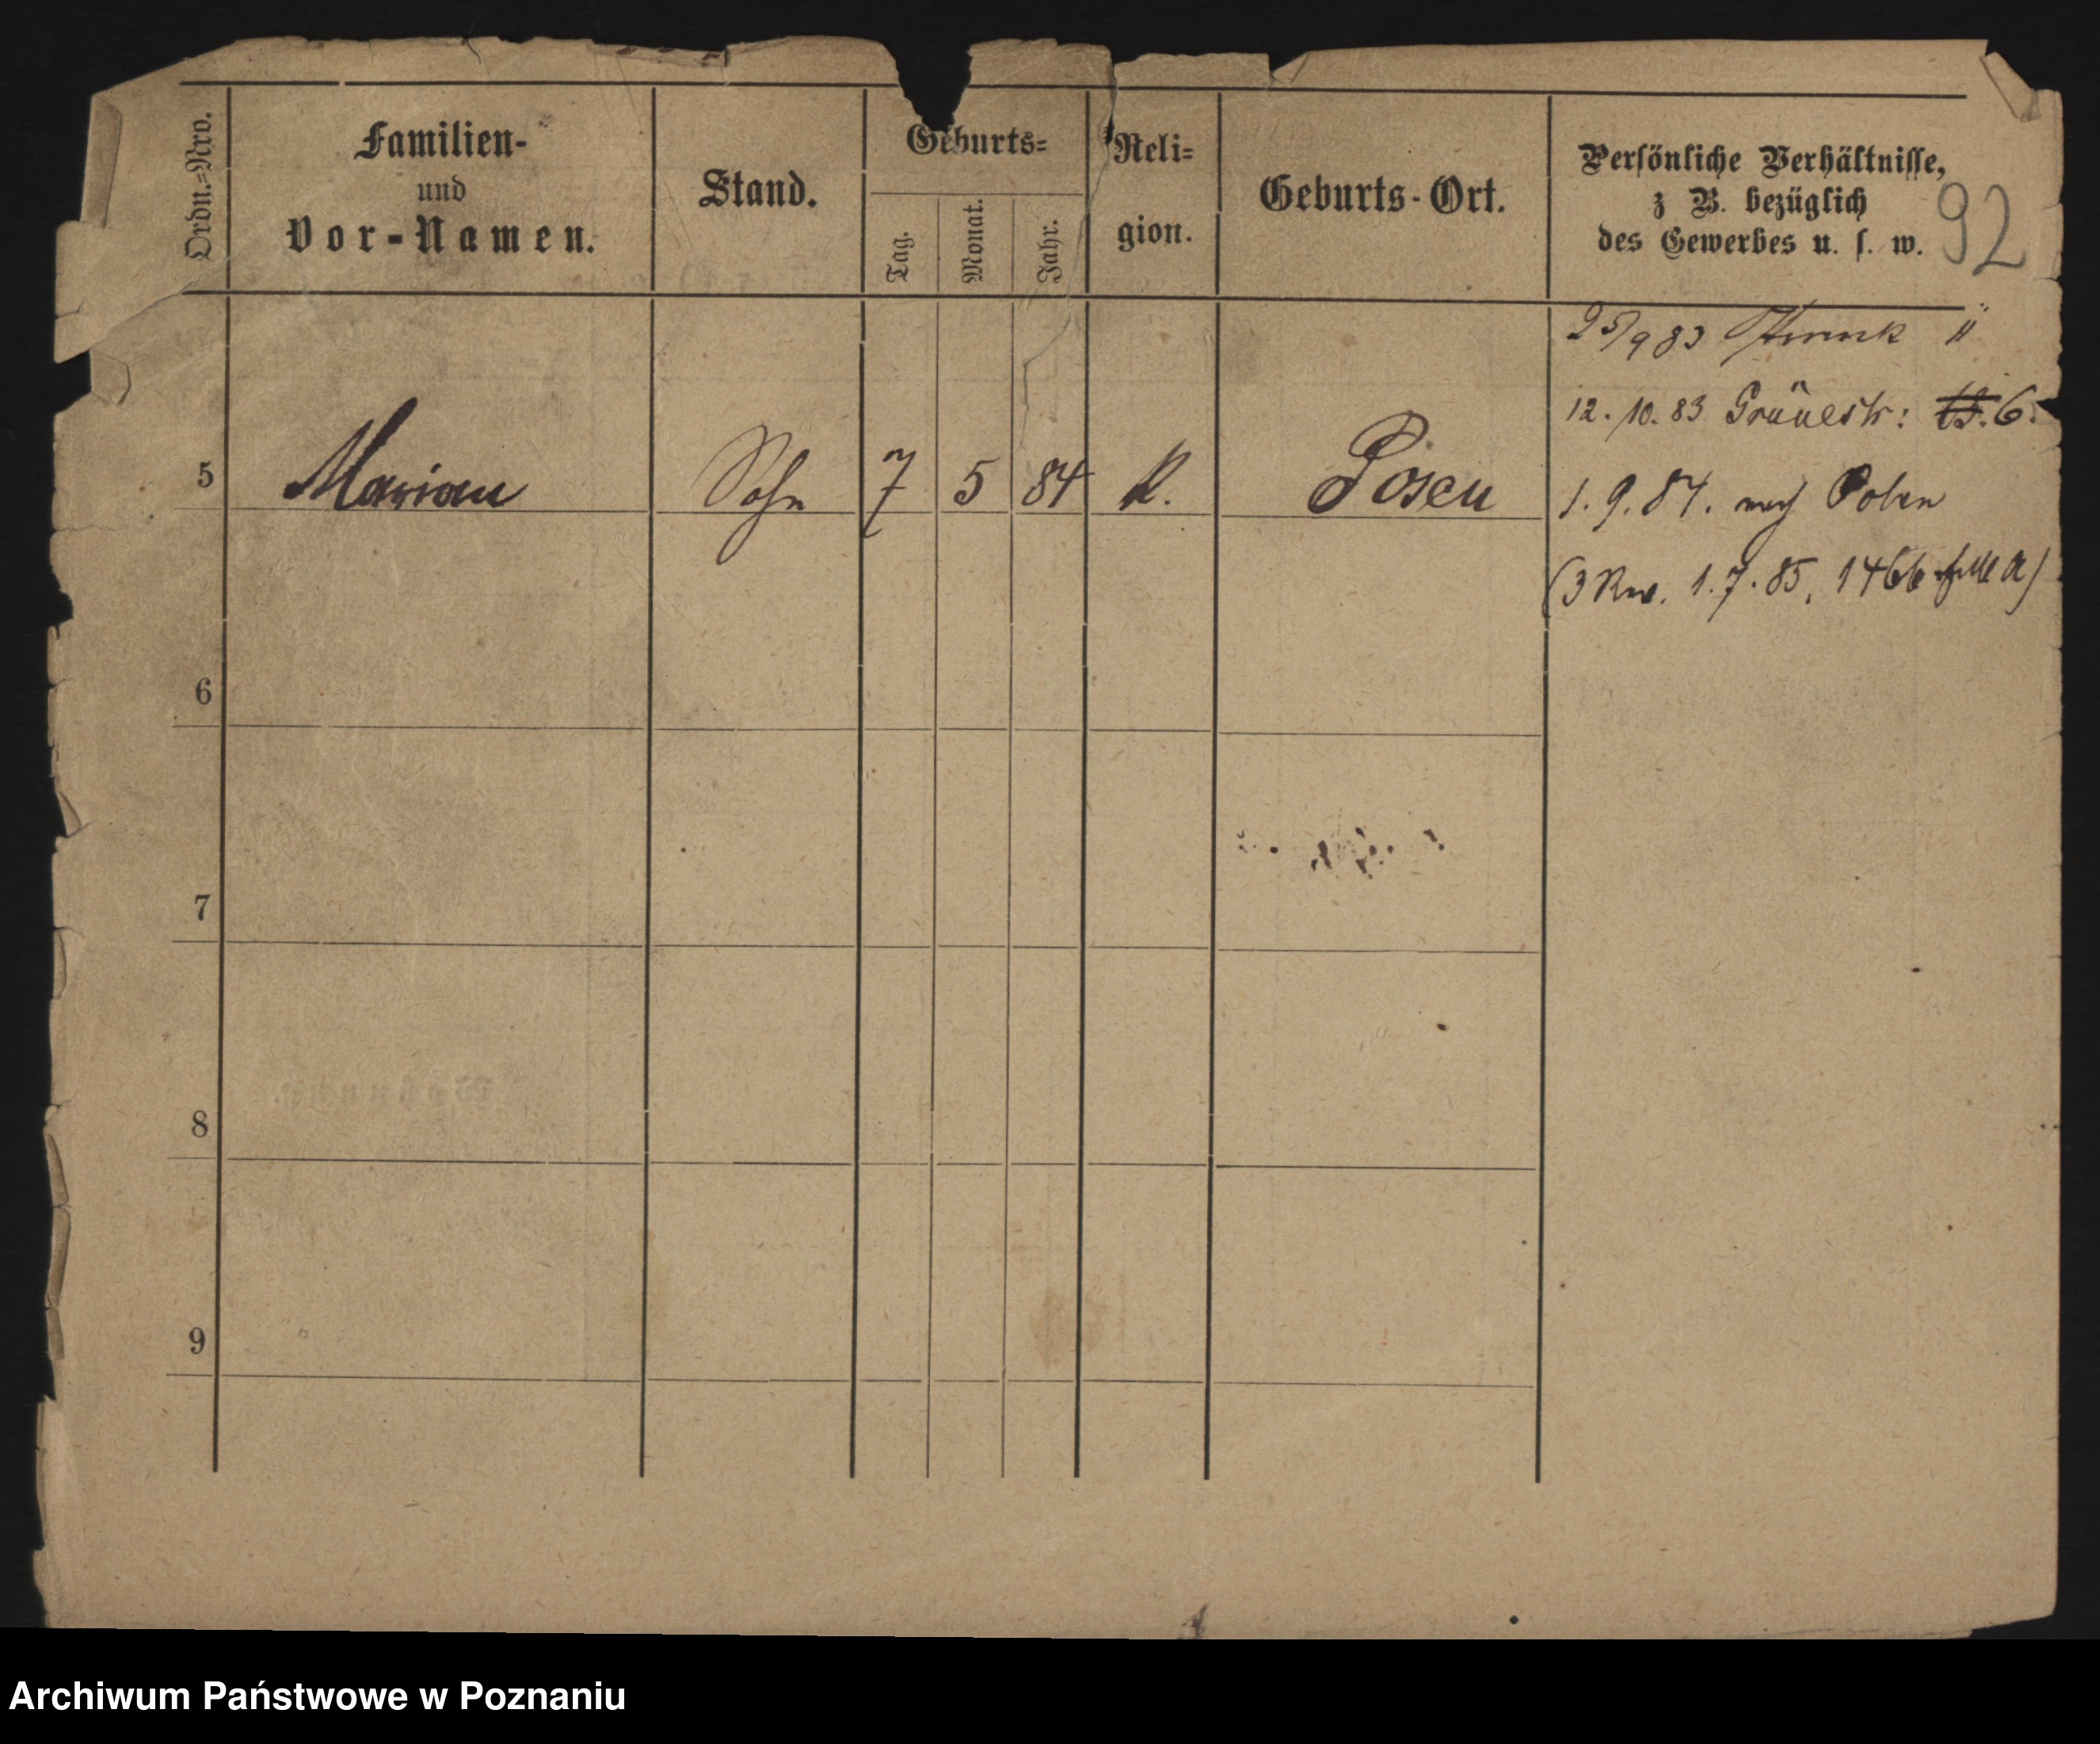 Ordn.=Nro.
Familien-
und
Vor-Namen.
Stand.
Geburts=
Tag.
Monat.
Jahr.
Reli=
gion.
Geburts-Ort.
Persönliche Verhältnisse,
z B. bezüglich
des Gewerbes u. s. w.
92
25/9 83
12. 10. 83 Grünestr: 6.
5 Marian Sohn 7 5 84 K. Posen
1. 9. 84. nach Polen
(3 Rev. 1. 7. 85, 1466
6
7
8
9
Archiwum Państwowe w Poznaniu